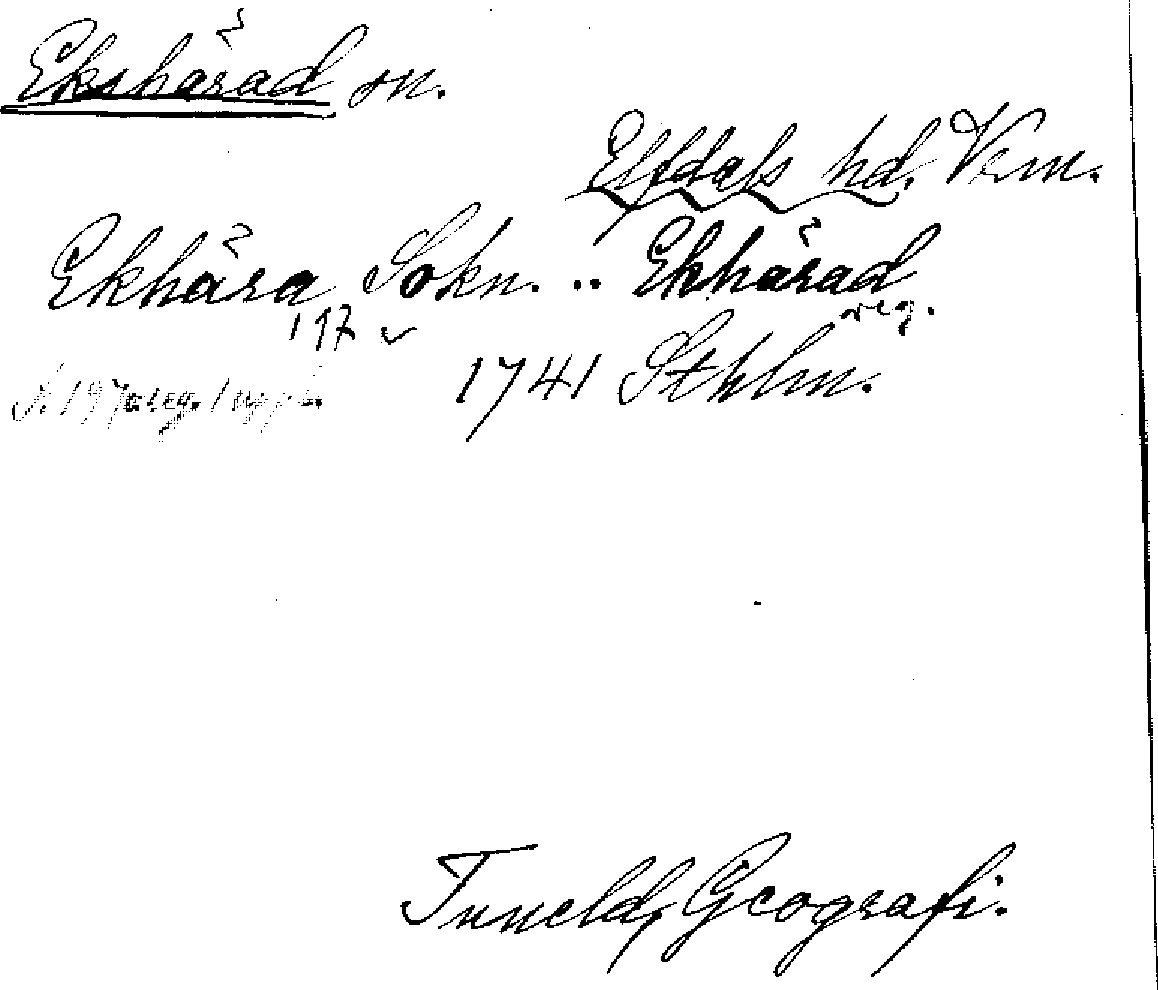 Ekshärad sn.
Elfdals hd. Verm.
Ekhära Sokn. .. Ekhärad
197 reg.
1741 Sthlm.
Tuneld, Geografi.